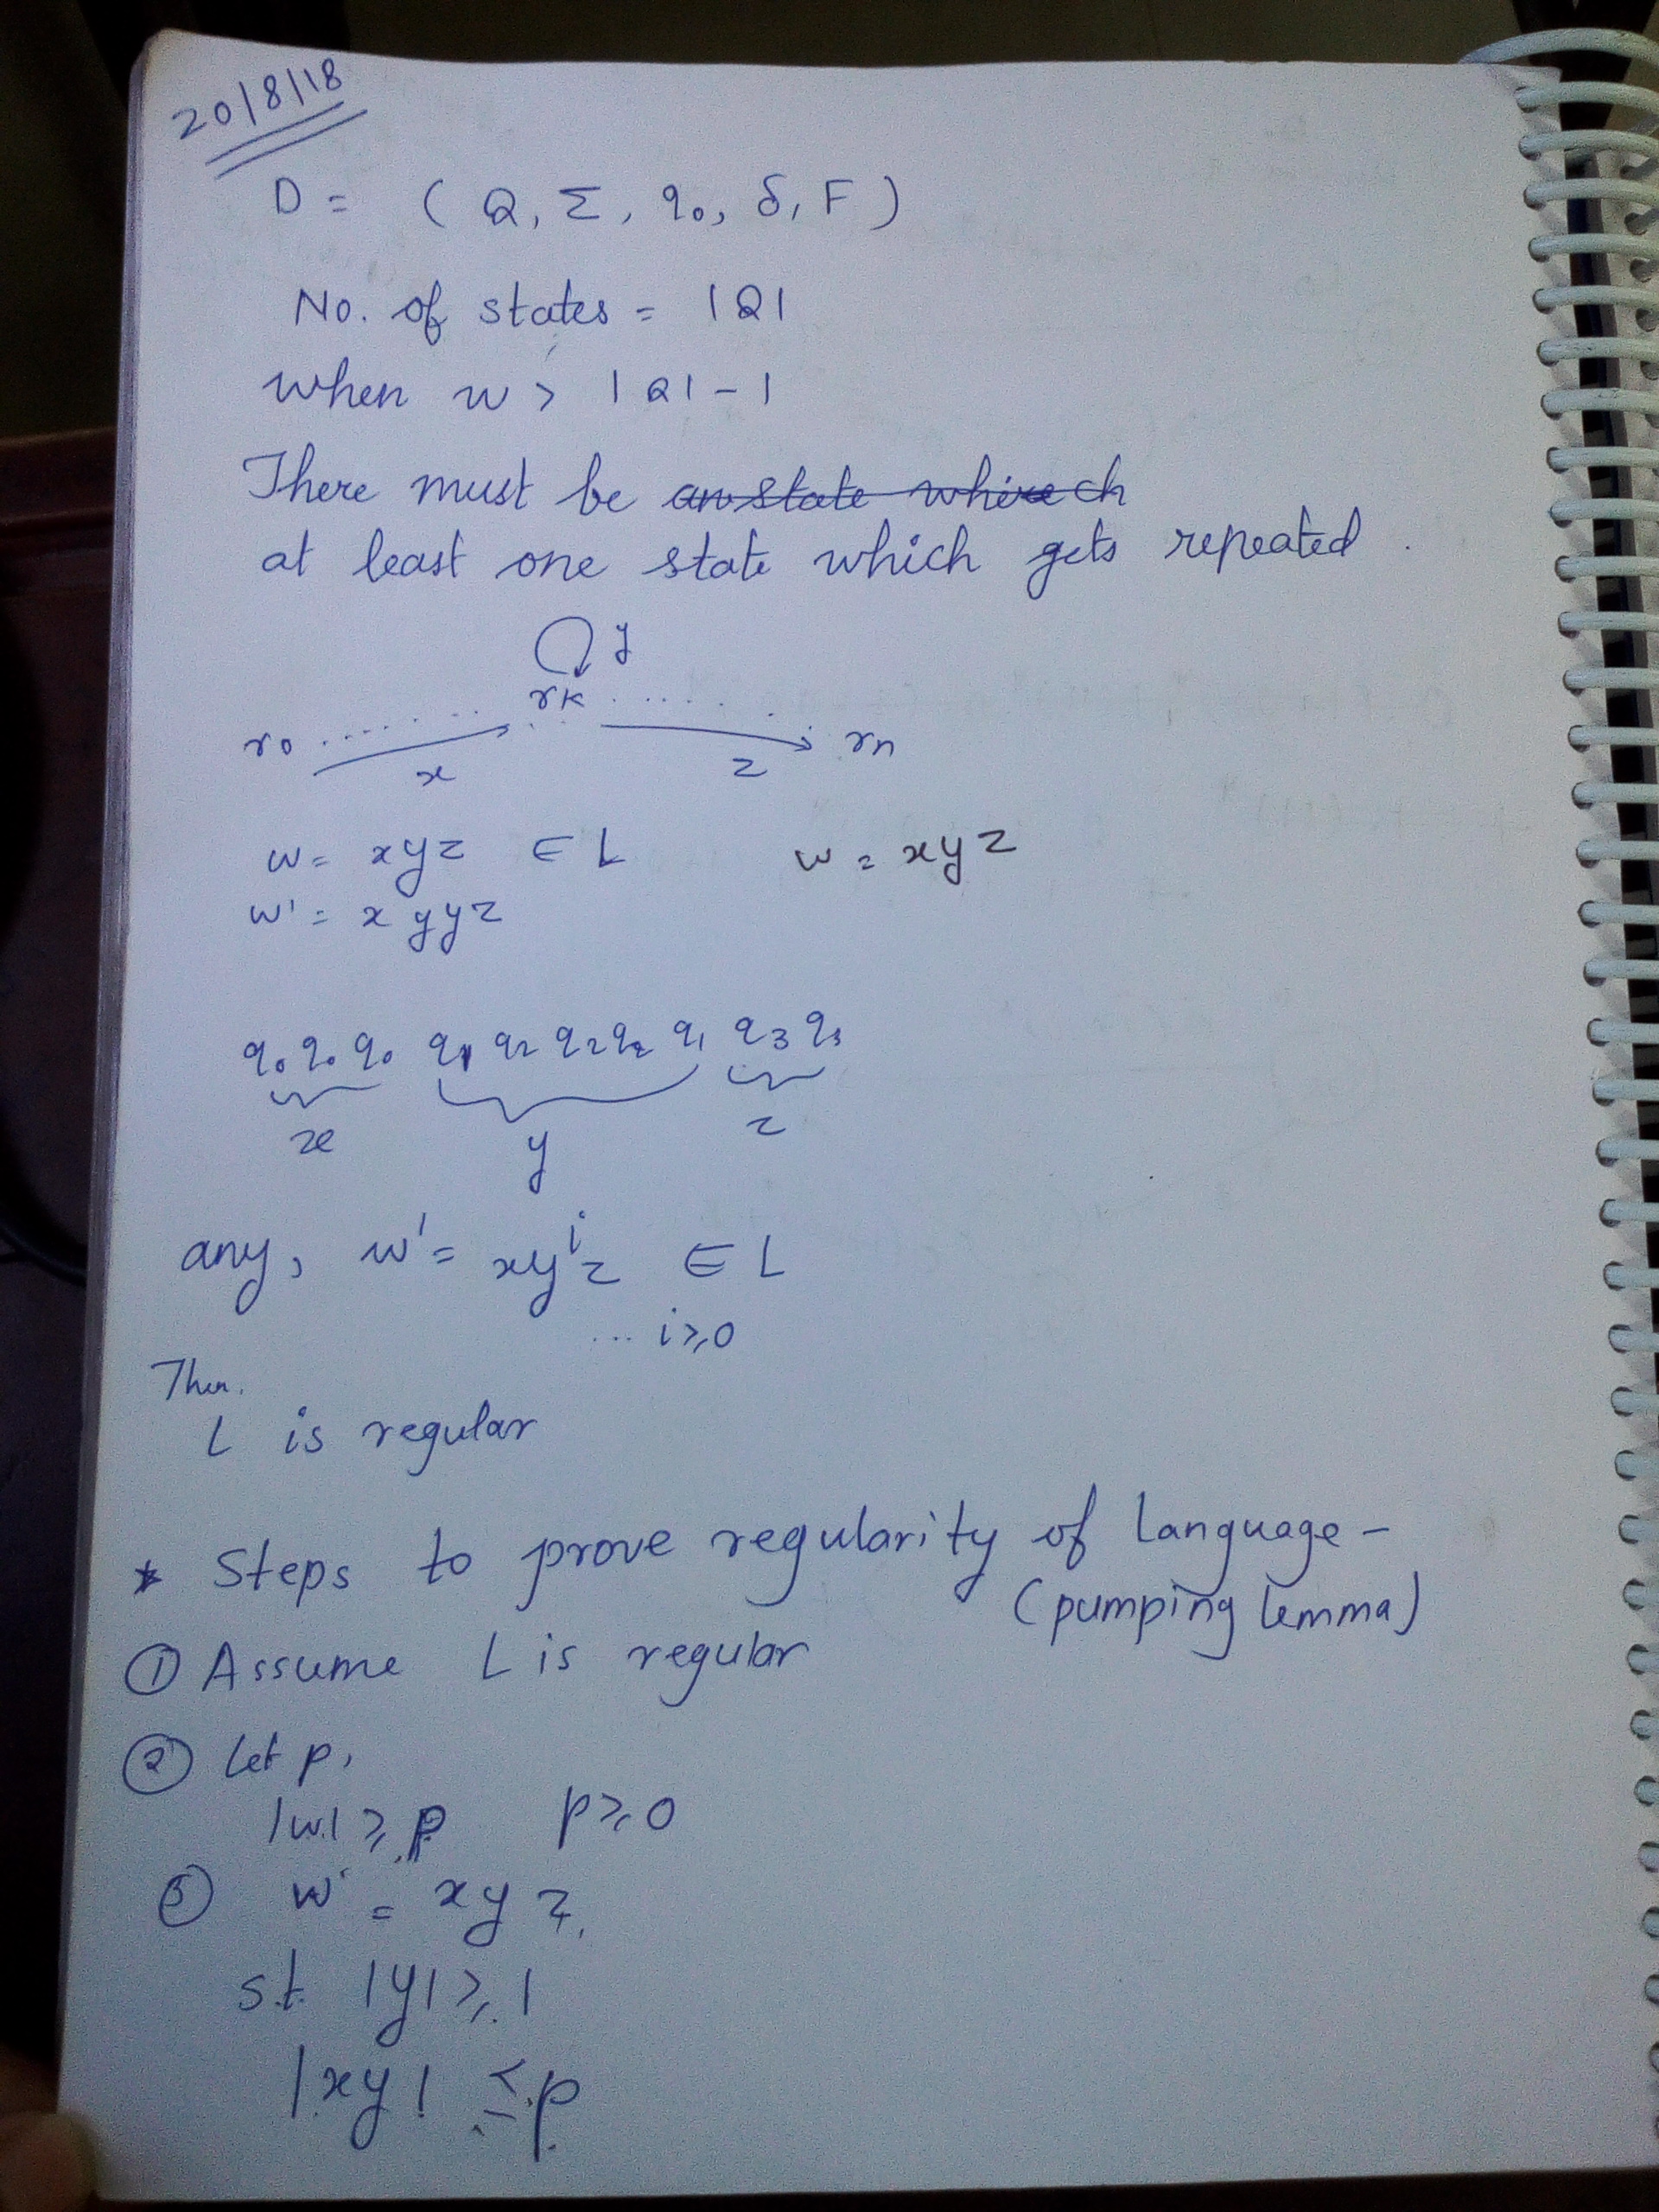 20/8/18
D = ( Q, Σ, q₀, δ, F )
No. of states = |Q|
when w > |Q| - 1
There must be an state where ch
at least one state which gets repeated.
y
r₀ ...... rₖ ...... rₙ
x z
w = xyz ∈ L w = xyz
w' = x yyz
q₀ q₀ q₀ q₁ q₂ q₂ q₂ q₁ q₃ q₃
x y z
any, w' = xyⁱz ∈ L
... i ≥ 0
Then.
L is regular
* Steps to prove regularity of language -
(pumping lemma)
① Assume L is regular
② Let p,
|w| ≥ p p ≥ 0
③ w = xyz,
s.t. |y| ≥ 1
|xy| ≤ p